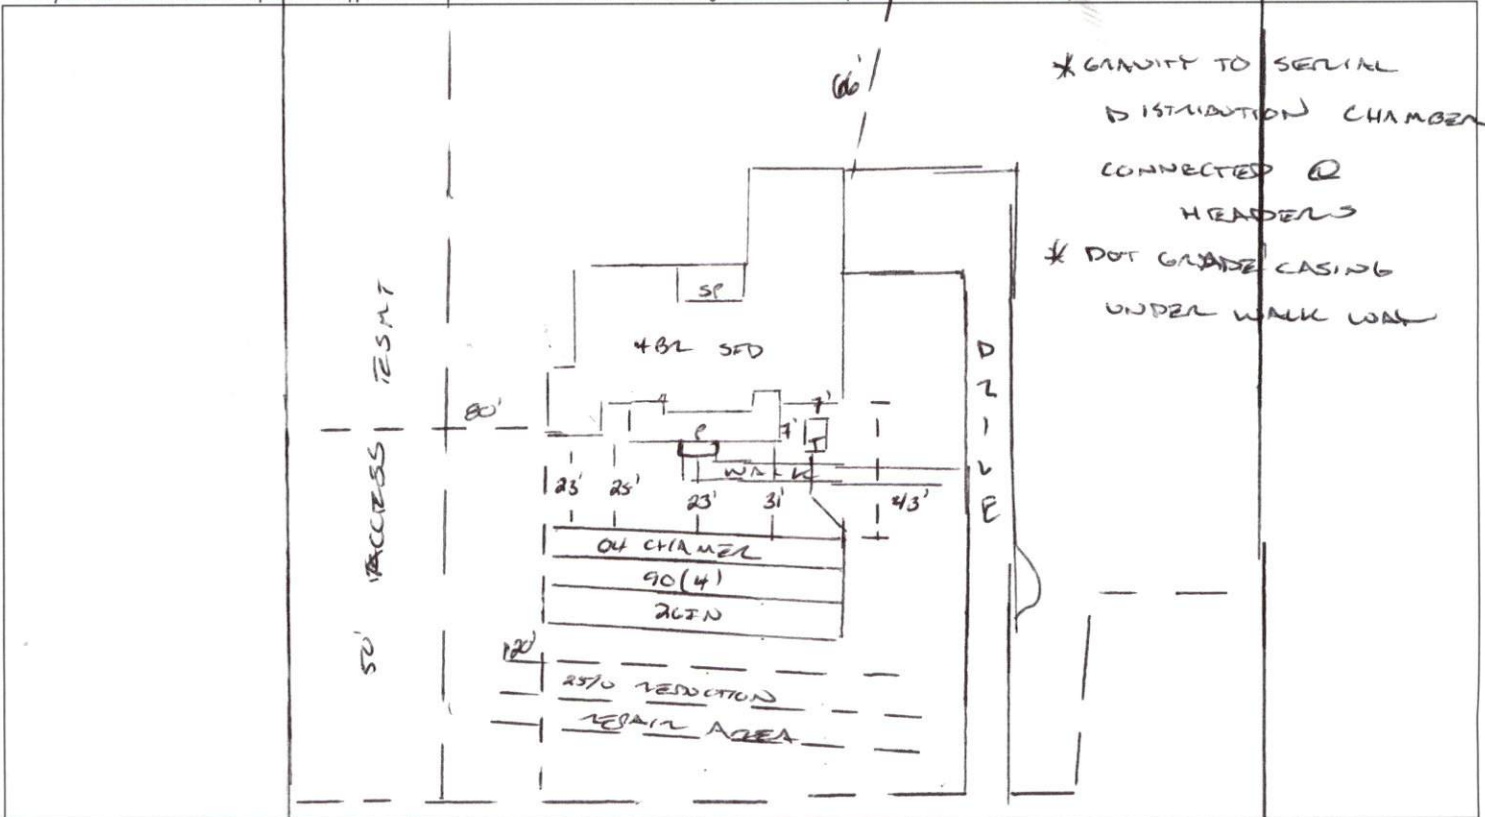 66'
* GRAVITY TO SERIAL
DISTRIBUTION CHAMBER
CONNECTED @
HEADERS
* DOT GRADE CASING
UNDER WALK WAY
SP
4BR SFD
DRIVE
50' ACCESS ESMT
80'
7'
P
7'
T
WALK
23'
25'
23'
31'
43'
Q4 CHAMER
90(4)
26IN
120'
25% REDUCTION
REPAIR AREA